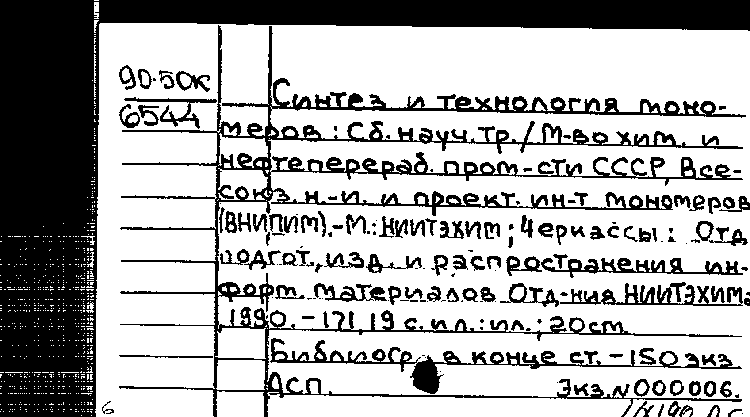 90-50к
6544
Синтез и технология моно-
меров : Сб. науч. тр. / М-во хим. и
нефтеперераб. пром-сти СССР, Все-
союз. н.-и. и проект. ин-т мономеров
(ВНИПИМ). - М. : НИИТЭХИМ ; Черкассы : Отд
подгот., изд. и распространения ин-
форм. материалов Отд-ния НИИТЭХИМа
, 1990. - 171, 19 с. ил. : ил. ; 20 см
Библиогр. в конце ст. - 150 экз
ДСП. Экз. N 000006.
6